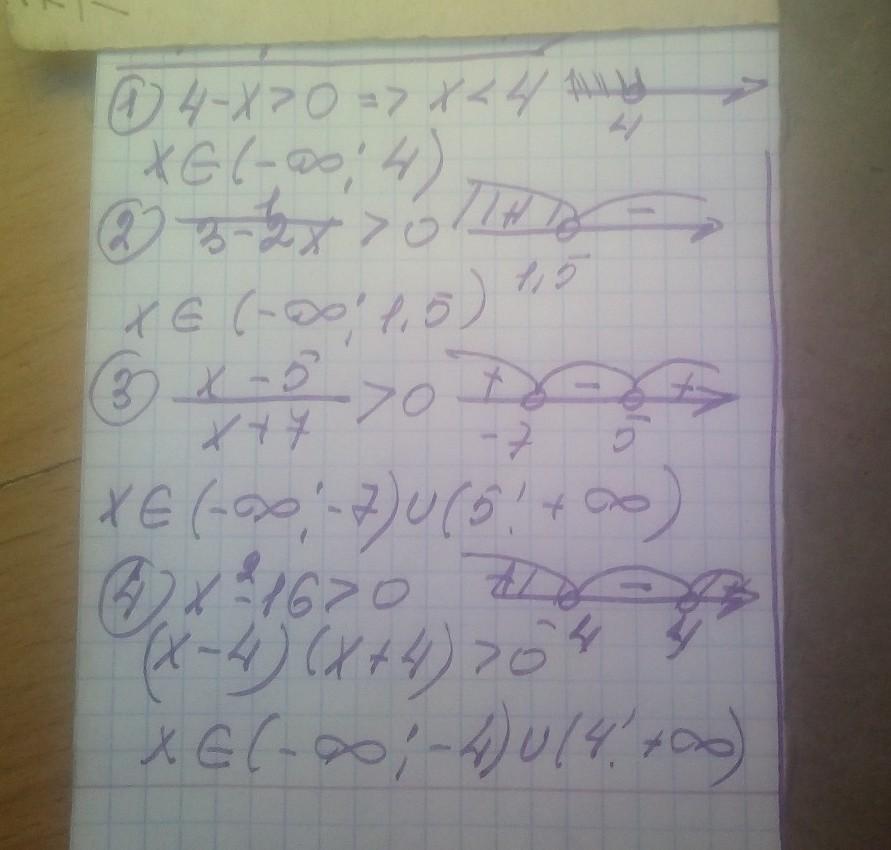 1) 4-x>0 => x<4
4
x∈(-∞; 4)
2) 1/(3-2x) > 0 + -
1,5
x ∈ (-∞; 1,5)
3) (x-5)/(x+7) > 0 + - +
-7 5
x∈(-∞; -7)∪(5; +∞)
4) x²-16>0 + - +
-4 4
(x-4)(x+4)>0
x∈(-∞; -4)∪(4; +∞)